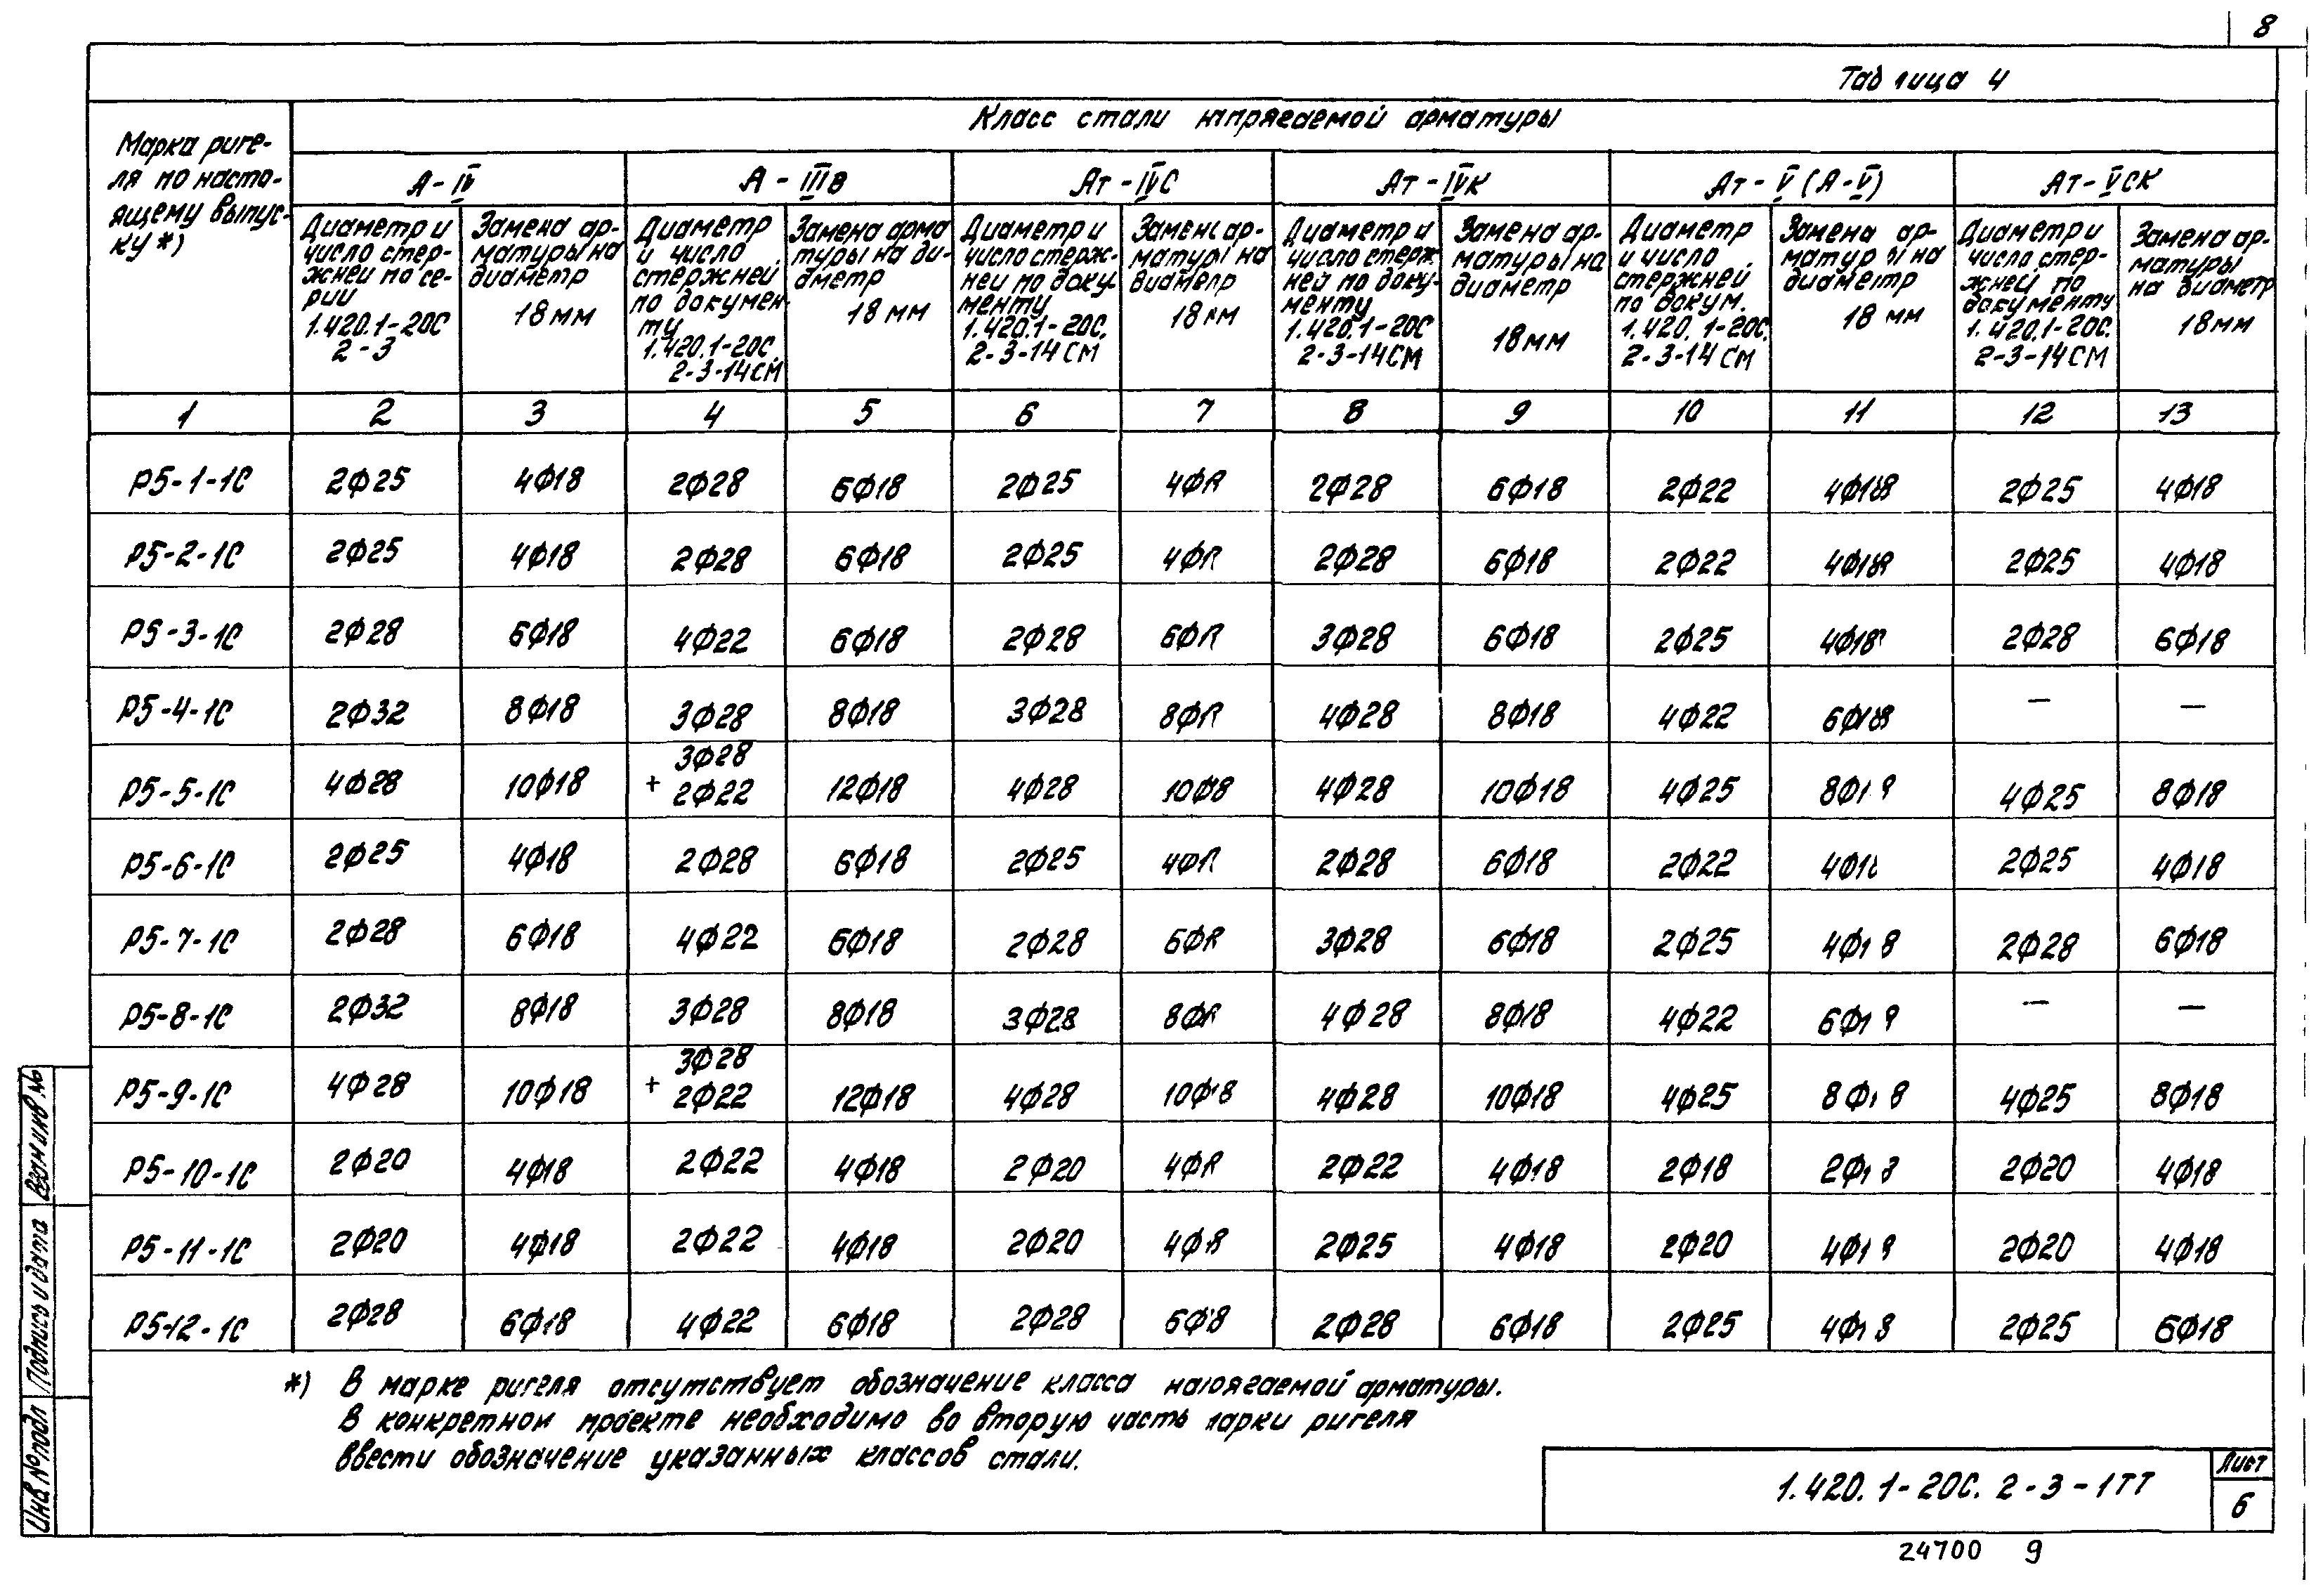 8
Таблица 4
Марка риге-
ля по насто-
ящему выпус-
ку *)
Класс стали напрягаемой арматуры
А-IV
А-IIIв
Ат-IVС
Ат-IVК
Ат-V (А-V)
Ат-VСК
Диаметр и
число стер-
жней по се-
рии
1.420.1-20С
2-3
Замена ар-
матуры на
диаметр
18 мм
Диаметр
и число
стержней
по докумен-
ту
1.420.1-20С.
2-3-14СМ
Замена арма
туры на ди-
аметр
18 мм
Диаметр и
число стерж-
ней по доку-
менту
1.420.1-20С.
2-3-14СМ
Замена ар-
матуры на
диаметр
18 мм
Диаметр и
число стерж
ней по доку-
менту
1.420.1-20С
2-3-14СМ
Замена ар-
матуры на
диаметр
18мм
Диаметр
и число
стержней
по докум.
1.420.1-20С.
2-3-14СМ
Замена ар-
матуры на
диаметр
18 мм
Диаметр и
число стер-
жней по
документу
1.420.1-20С.
2-3-14СМ
Замена ар-
матуры
на диаметр
18мм
1 2 3 4 5 6 7 8 9 10 11 12 13
Р5-1-1С 2Ф25 4Ф18 2Ф28 6Ф18 2Ф25 4Ф18 2Ф28 6Ф18 2Ф22 4Ф18 2Ф25 4Ф18
Р5-2-1С 2Ф25 4Ф18 2Ф28 6Ф18 2Ф25 4Ф18 2Ф28 6Ф18 2Ф22 4Ф18 2Ф25 4Ф18
Р5-3-1С 2Ф28 6Ф18 4Ф22 6Ф18 2Ф28 6Ф18 3Ф28 6Ф18 2Ф25 4Ф18 2Ф28 6Ф18
Р5-4-1С 2Ф32 8Ф18 3Ф28 8Ф18 3Ф28 8Ф18 4Ф28 8Ф18 4Ф22 6Ф18 — —
Р5-5-1С 4Ф28 10Ф18 3Ф28 + 2Ф22 12Ф18 4Ф28 10Ф18 4Ф28 10Ф18 4Ф25 8Ф18 4Ф25 8Ф18
Р5-6-1С 2Ф25 4Ф18 2Ф28 6Ф18 2Ф25 4Ф18 2Ф28 6Ф18 2Ф22 4Ф18 2Ф25 4Ф18
Р5-7-1С 2Ф28 6Ф18 4Ф22 6Ф18 2Ф28 6Ф18 3Ф28 6Ф18 2Ф25 4Ф18 2Ф28 6Ф18
Р5-8-1С 2Ф32 8Ф18 3Ф28 8Ф18 3Ф28 8Ф18 4Ф28 8Ф18 4Ф22 6Ф18 — —
Р5-9-1С 4Ф28 10Ф18 3Ф28 + 2Ф22 12Ф18 4Ф28 10Ф18 4Ф28 10Ф18 4Ф25 8Ф18 4Ф25 8Ф18
Р5-10-1С 2Ф20 4Ф18 2Ф22 4Ф18 2Ф20 4Ф18 2Ф22 4Ф18 2Ф18 2Ф18 2Ф20 4Ф18
Р5-11-1С 2Ф20 4Ф18 2Ф22 4Ф18 2Ф20 4Ф18 2Ф25 4Ф18 2Ф20 4Ф18 2Ф20 4Ф18
Р5-12-1С 2Ф28 6Ф18 4Ф22 6Ф18 2Ф28 6Ф18 2Ф28 6Ф18 2Ф25 4Ф18 2Ф25 6Ф18
*) В марке ригеля отсутствует обозначение класса напрягаемой арматуры.
В конкретном проекте необходимо во вторую часть марки ригеля
ввести обозначение указанных классов стали.
Инв.№подл
Подпись и дата
Взам инв.№
1.420.1-20С.2-3-1ТТ
Лист
6
24700 9